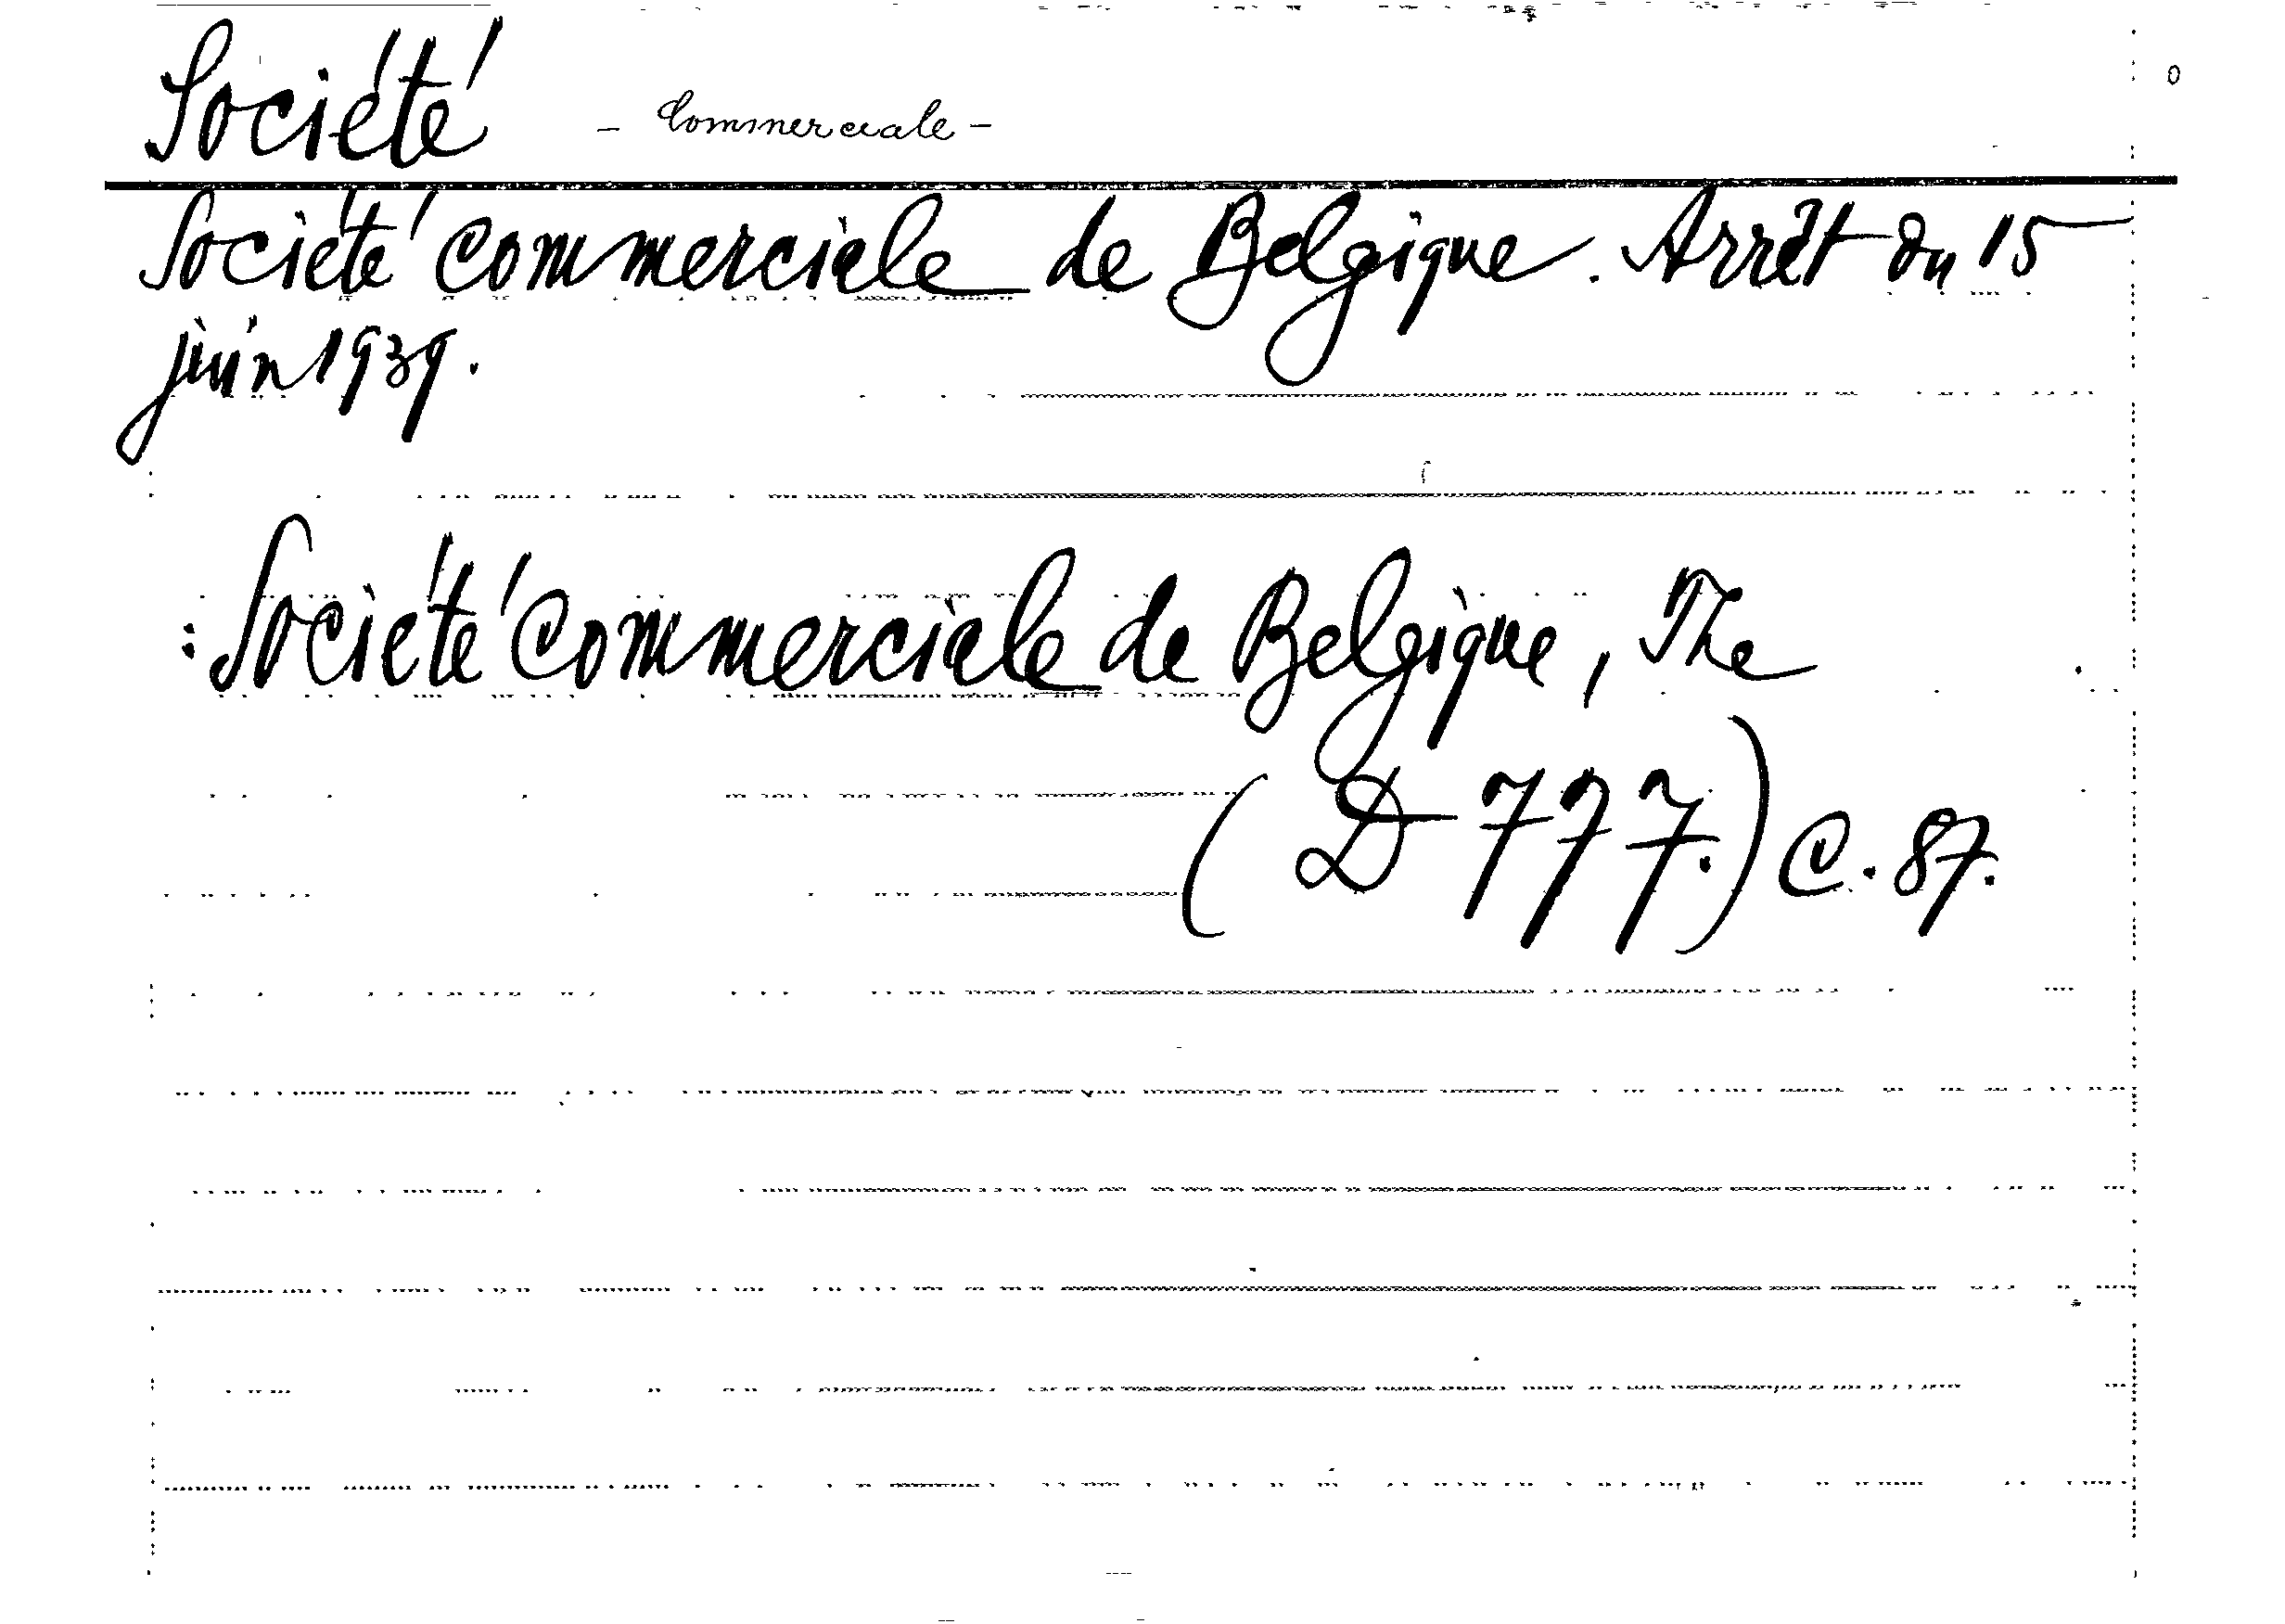 Société - Commerciale -
Société Commerciale de Belgique. Arrêt du 15
juin 1939.
: Société Commerciale de Belgique, The
(D 777.) C. 87.